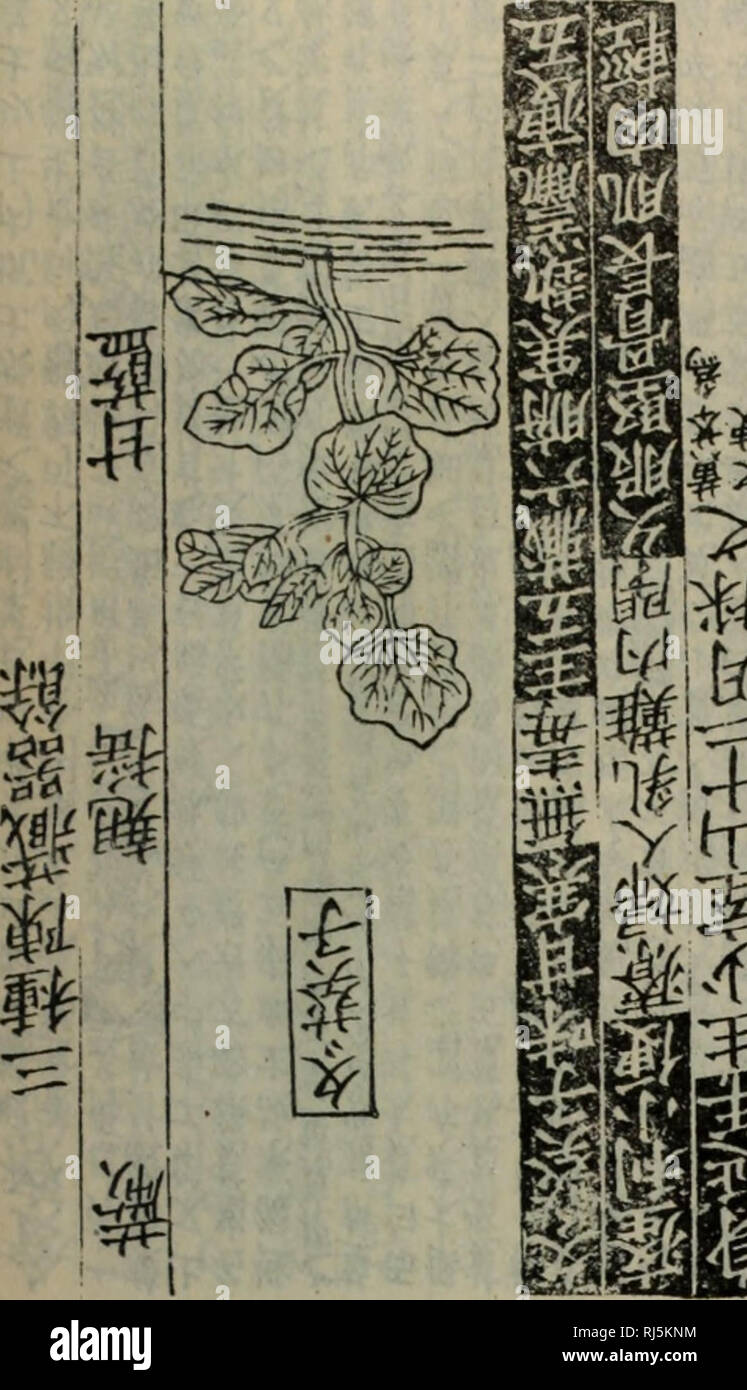 三種陳藏器餘
蕨 翹搖 甘藍
冬葵子
冬葵子味甘寒無毒主五藏六腑寒熱羸瘦五
癃利小便療婦人乳難內閉久服堅骨長肌肉輕
身延年生少室山十二月採之 黃芩為之使
alamy
Image ID: RJ5KNM
www.alamy.com